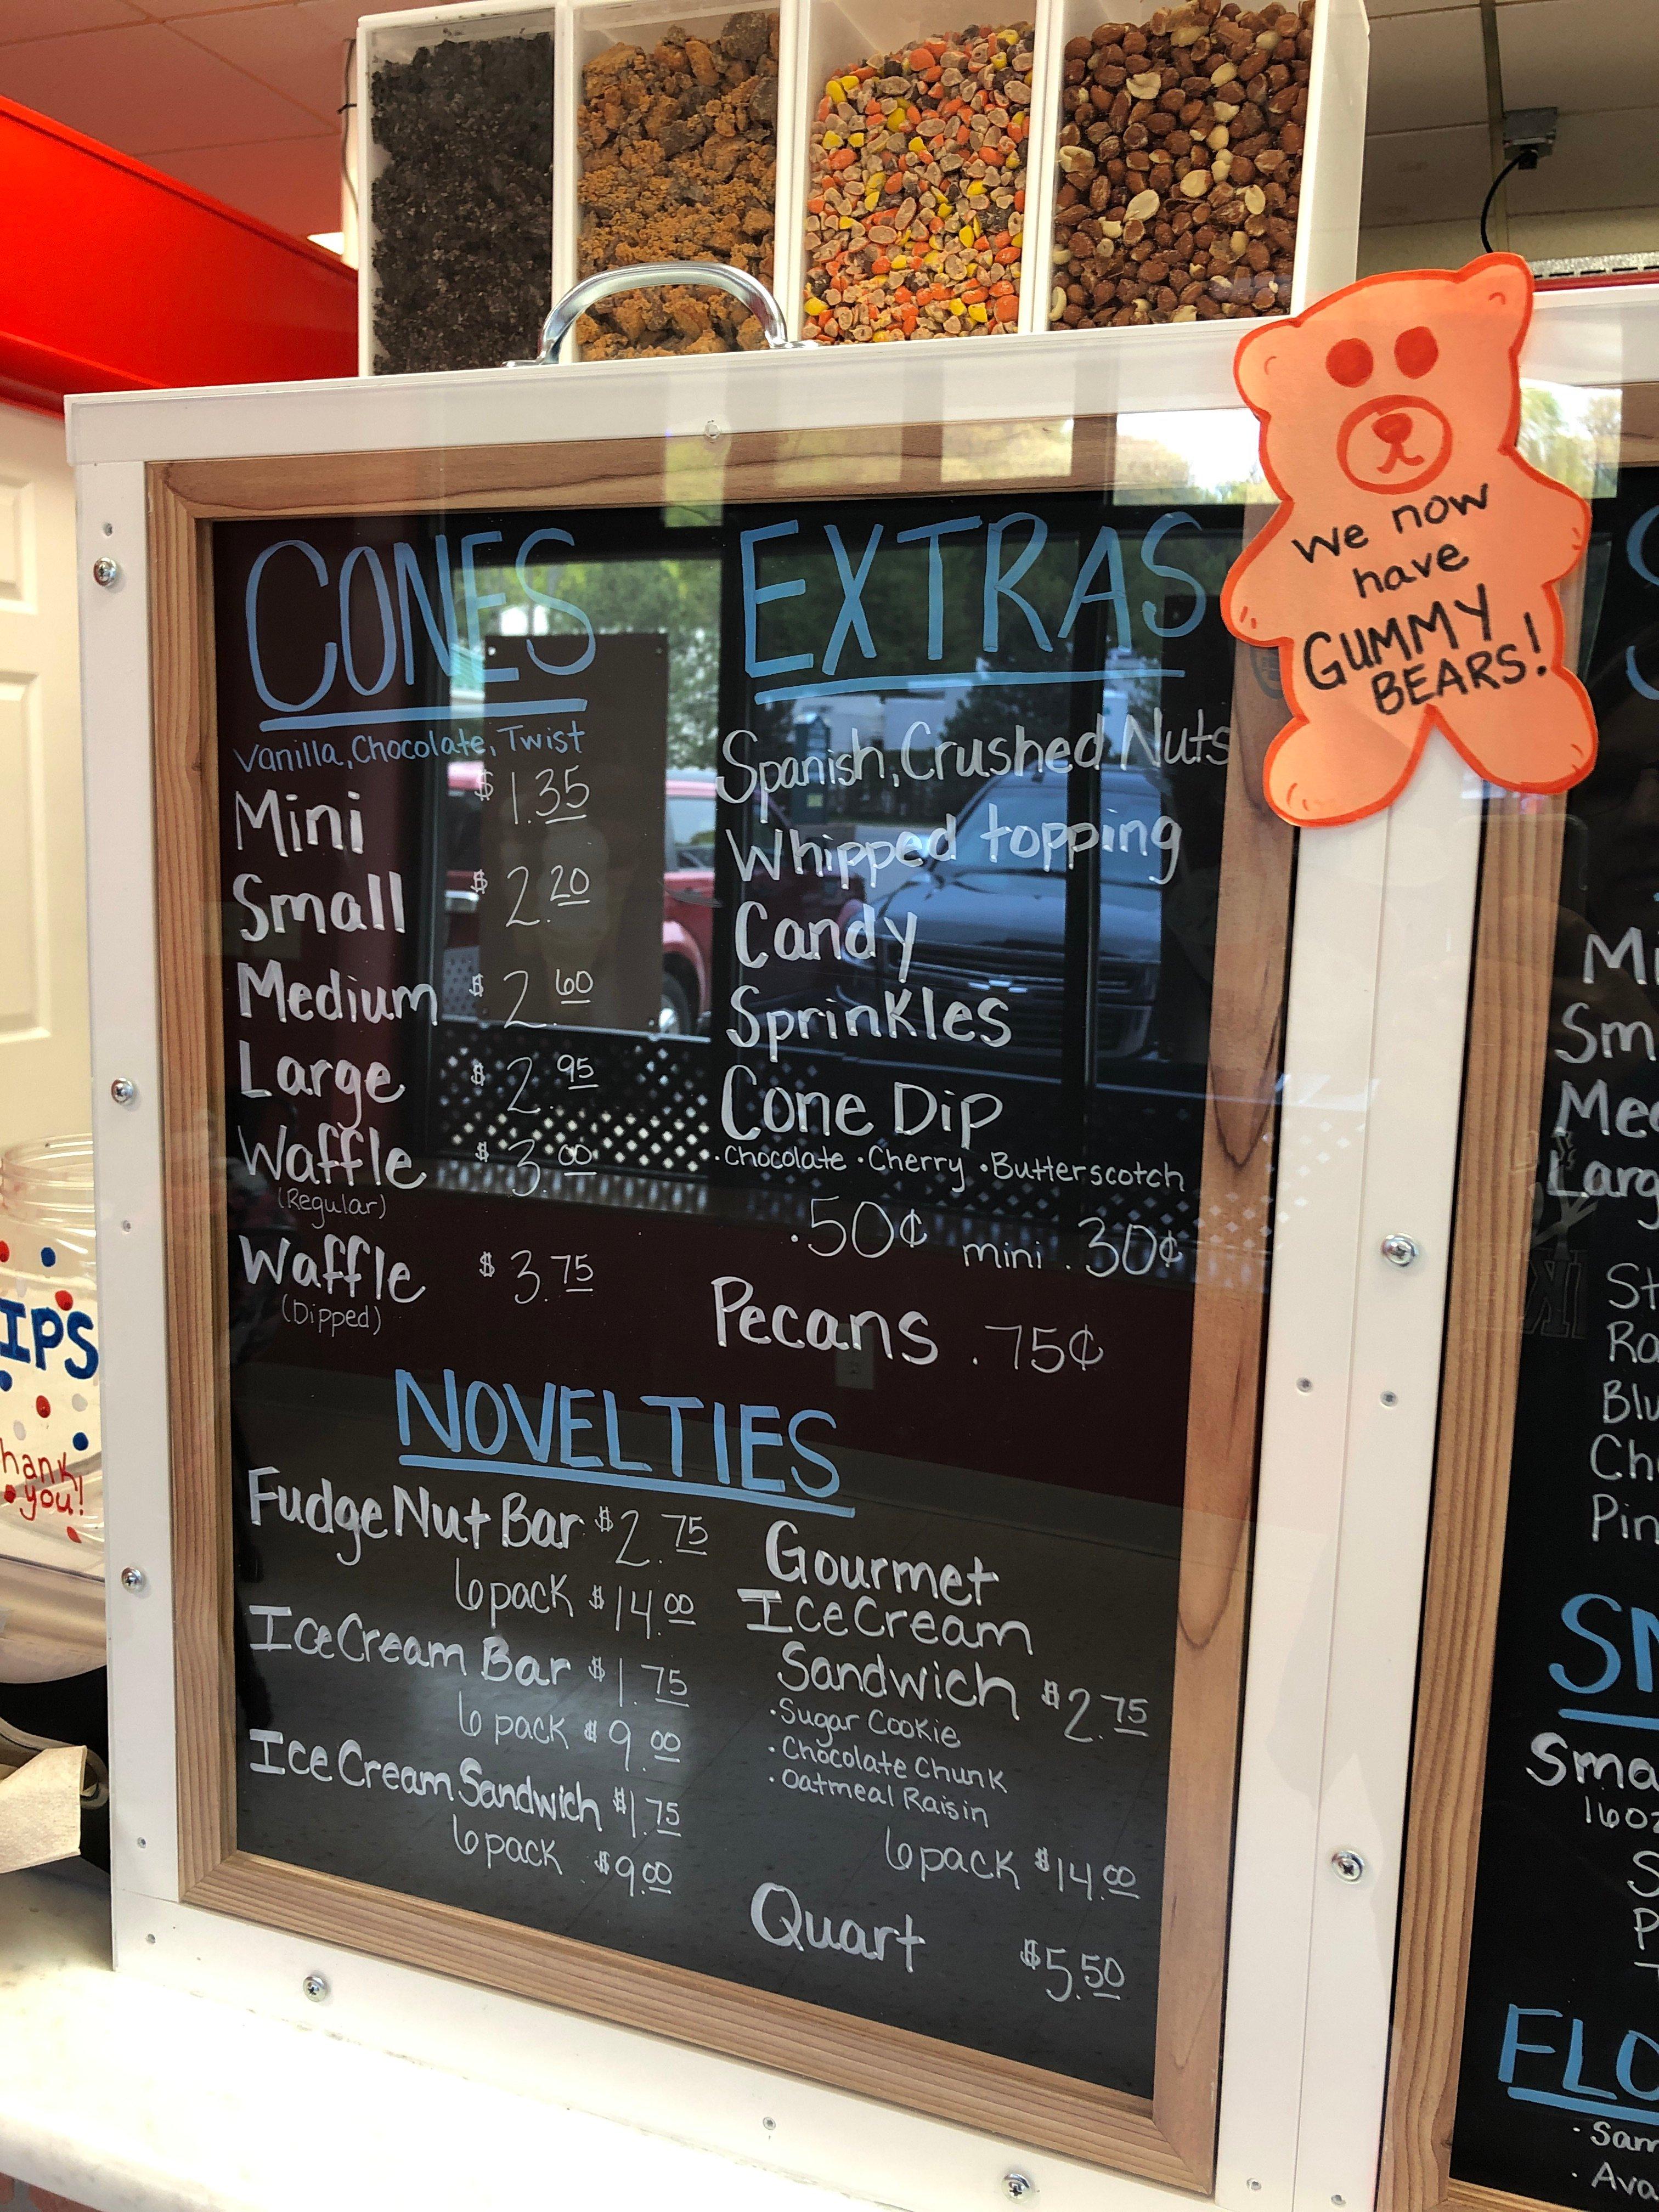 CONES
Vanilla, Chocolate, Twist
Mini $1.35
Small $2.20
Medium $2.60
Large $2.95
Waffle $3.00
(Regular)
Waffle $3.75
(Dipped)
EXTRAS
Spanish, Crushed Nuts
Whipped topping
Candy
Sprinkles
Cone Dip
• Chocolate • Cherry • Butterscotch
.50¢ mini .30¢
Pecans .75¢
NOVELTIES
Fudge Nut Bar $2.75
6 pack $14.00
Ice Cream Bar $1.75
6 pack $9.00
Ice Cream Sandwich $1.75
6 pack $9.00
Gourmet
Ice Cream
Sandwich $2.75
• Sugar Cookie
• Chocolate Chunk
• Oatmeal Raisin
6 pack $14.00
Quart $5.50
We now
have
GUMMY
BEARS!
IPS
hank
you!
Mi
Sm
Med
Larg
St
Ra
Blu
Ch
Pin
SN
Sma
16oz
S
P
FLO
• Sam
• Ava